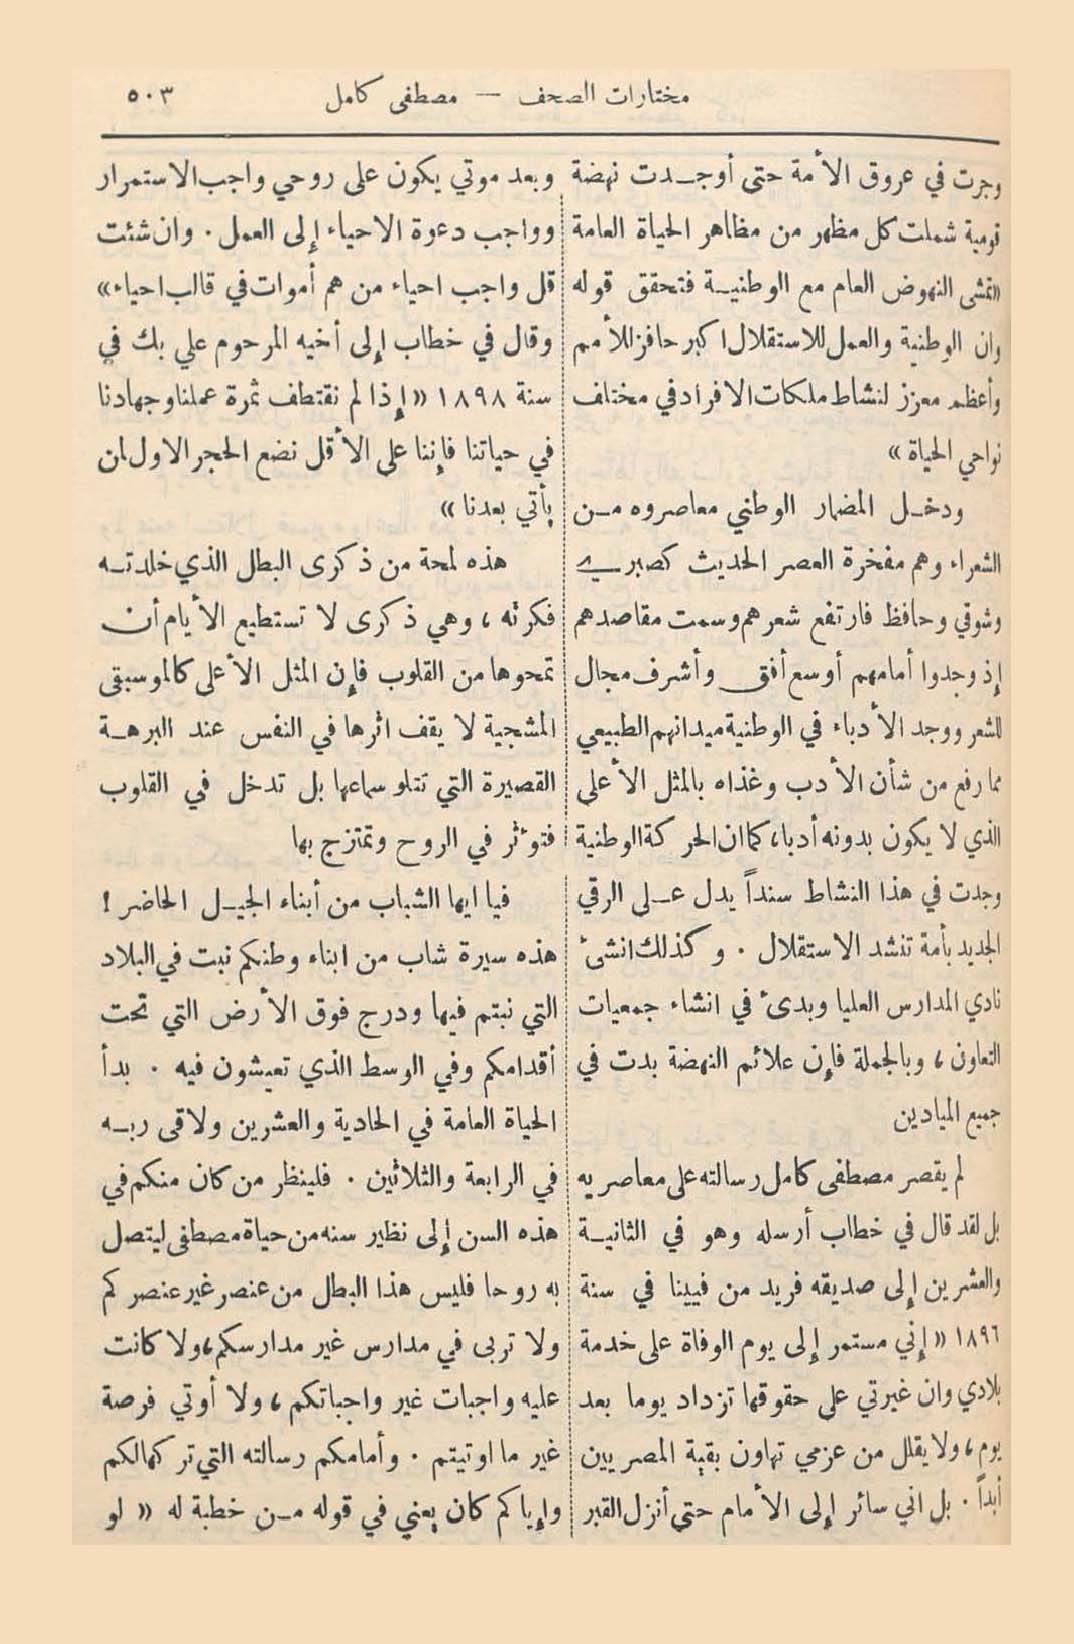 مختارات الصحف — مصطفى كامل ٥٠٣
وجرت في عروق الأمة حتى أوجـدت نهضة
قومية شملت كل مظهر من مظاهر الحياة العامة
«تمشى النهوض العام مع الوطنيـة فتحقق قوله
وان الوطنية والعمل للاستقلال اكبر حافز للأمم
وأعظم معزز لنشاط ملكات الافراد في مختلف
نواحي الحياة»
ودخـل المضمار الوطني معاصروه مـن
الشعراء وهم مفخرة العصر الحديث كصبري
وشوقي وحافظ فارتفع شعرهم وسمت مقاصدهم
إذ وجدوا أمامهم أوسع أفق وأشرف مجال
للشعر ووجد الأدباء في الوطنية ميدانهم الطبيعي
مما رفع من شأن الأدب وغذاه بالمثل الأعلى
الذي لا يكون بدونه أدبا، كما ان الحركة الوطنية
وجدت في هذا النشاط سنداً يدل عـلى الرقي
الجديد بأمة تنشد الاستقلال . وكذلك انشئ
نادي المدارس العليا وبدئ في انشاء جمعيات
التعاون ، وبالجملة فإن علائم النهضة بدت في
جميع الميادين
لم يقصر مصطفى كامل رسالته على معاصريه
بل لقد قال في خطاب أرسله وهو في الثانيـة
والعشرين إلى صديقه فريد من فيينا في سنة
١٨٩٦ «إني مستمر إلى يوم الوفاة على خدمة
بلادي وان غيرتي على حقوقها تزداد يوما بعد
يوم ، ولا يقلل من عزمي تهاون بقية المصريين
أبداً . بل اني سائر إلى الأمام حتى أنزل القبر
وبعد موتي يكون على روحي واجب الاستمرار
وواجب دعوة الاحياء إلى العمل . وان شئت
قل واجب احياء من هم أموات في قالب احياء»
وقال في خطاب إلى أخيه المرحوم علي بك في
سنة ١٨٩٨ «إذا لم نقتطف ثمرة عملنا وجهادنا
في حياتنا فإننا على الأقل نضع الحجر الاول لمن
يأتي بعدنا»
هذه لمحة من ذكرى البطل الذي خلدتـه
فكرته ، وهي ذكرى لا تستطيع الأيام أن
تمحوها من القلوب فإن المثل الأعلى كالموسيقى
المشجية لا يقف اثرها في النفس عند البرهـة
القصيرة التي تتلو سماعها بل تدخل في القلوب
فتؤثر في الروح وتمتزج بها
فيا ايها الشباب من أبناء الجيـل الحاضر !
هذه سيرة شاب من ابناء وطنكم نبت في البلاد
التي نبتم فيها ودرج فوق الأرض التي تحت
أقدامكم وفي الوسط الذي تعيشون فيه . بدأ
الحياة العامة في الحادية والعشرين ولاقى ربـه
في الرابعة والثلاثين . فلينظر من كان منكم في
هذه السن إلى نظير سنه من حياة مصطفى ليتصل
به روحا فليس هذا البطل من عنصر غير عنصركم
ولا تربى في مدارس غير مدارسكم ، ولا كانت
عليه واجبات غير واجباتكم ، ولا أوتي فرصة
غير ما اوتيتم . وأمامكم رسالته التي تركها لكم
وإياكم كان يعني في قوله مـن خطبة له «لو